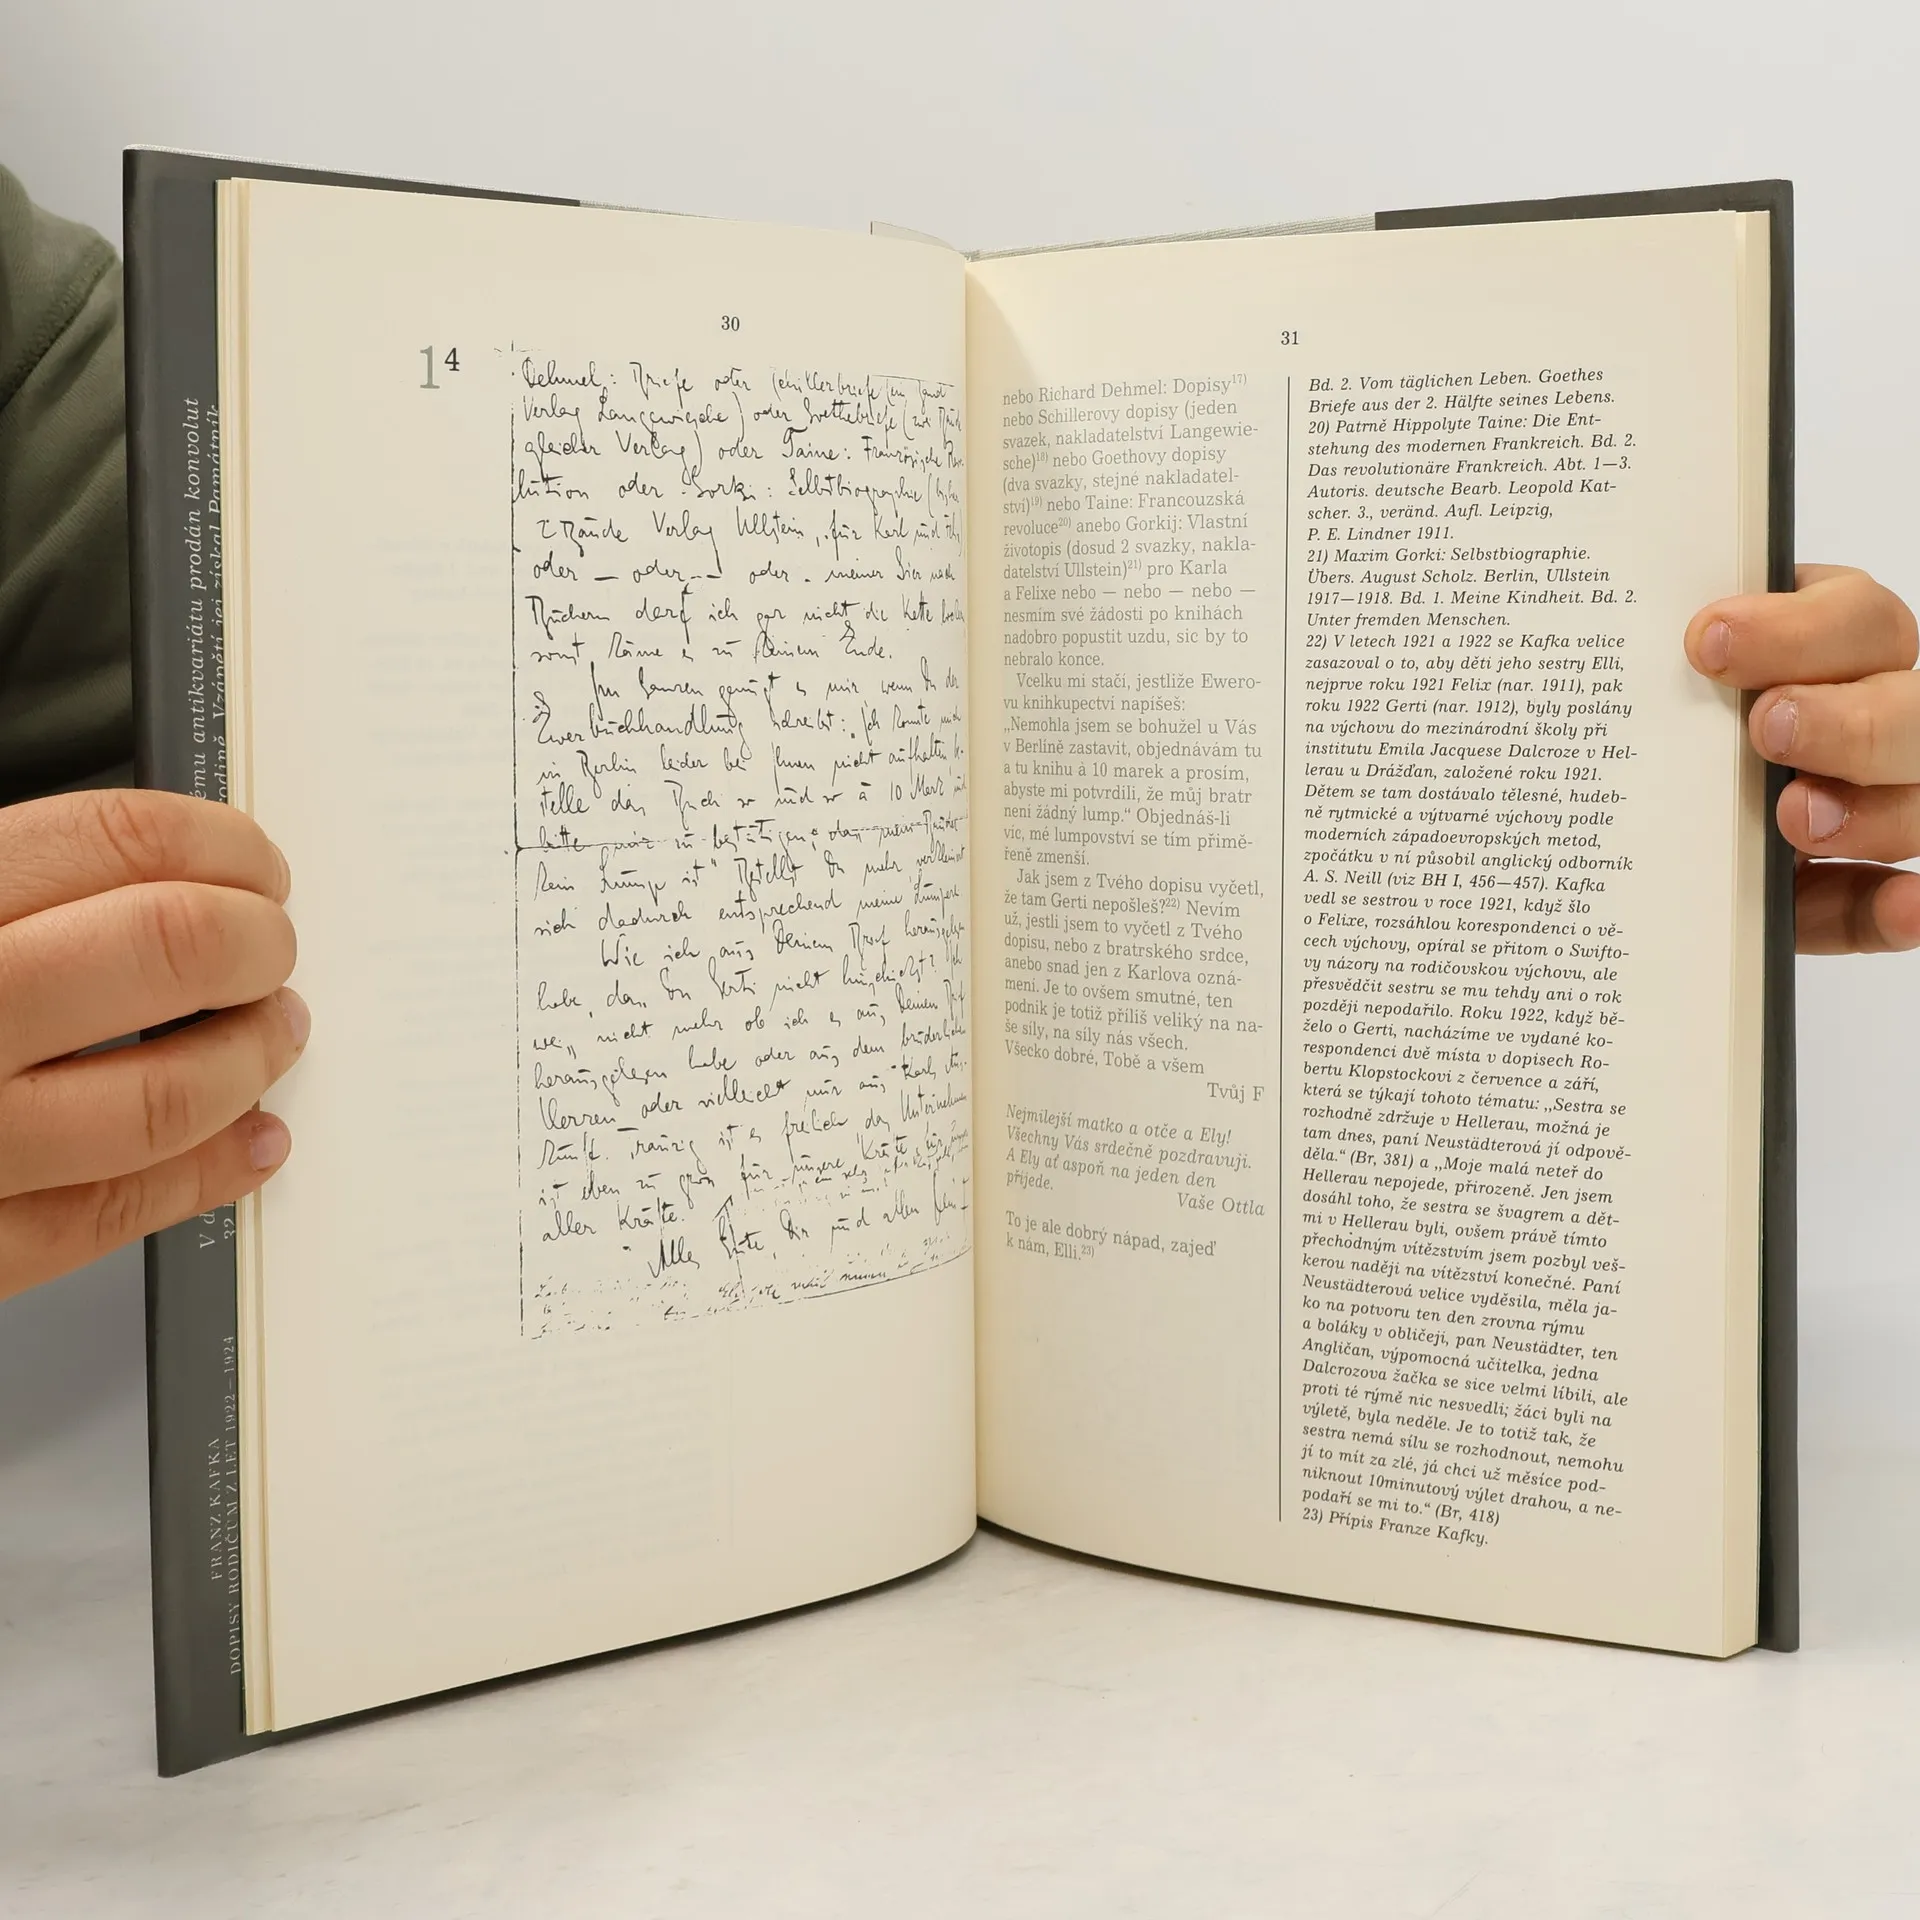 ému antikvariátu prodán konvolut
rodině. Vzápětí jej získal Památník
V d
32
FRANZ KAFKA
DOPISY RODIČŮM Z LET 1922–1924
30
1⁴
Dehmel: Briefe oder Schillerbriefe (ein Band
Verlag Langewiesche) oder Goethebriefe (zwei Bände
gleicher Verlag) oder Taine: Französische Revo-
lution oder Gorki: Selbstbiographie (bisher
2 Bände Verlag Ullstein, für Karl und Felix)
oder — oder — oder — meiner Gier nach
Büchern darf ich gar nicht die Kette lockern
sonst käme es zu keinem Ende.
Im Ganzen genügt es mir, wenn Du der
Ewerbuchhandlung schreibst: „Ich konnte mich
in Berlin leider bei Ihnen nicht aufhalten, be-
stelle das Buch so und so à 10 Mark und
bitte mir zu bestätigen, dass mein Bruder
kein Lump ist" Bestellst Du mehr, verkleinert
sich dadurch entsprechend meine Lumperei
Wie ich aus Deinem Brief herausgelesen
habe, dass Du Gerti nicht hinschickst? Ich
weiss nicht mehr ob ich es aus Deinem Brief
herausgelesen habe oder aus dem brüderlichen
Herzen oder vielleicht nur aus Karls Aus-
kunft. Traurig ist es freilich, das Unternehmen
ist eben zu gross für unsere Kräfte, für
aller Kräfte.
Alles Gute, Dir und allen Dein F
31
nebo Richard Dehmel: Dopisy¹⁷⁾
nebo Schillerovy dopisy (jeden
svazek, nakladatelství Langewie-
sche)¹⁸⁾ nebo Goethovy dopisy
(dva svazky, stejné nakladatel-
ství)¹⁹⁾ nebo Taine: Francouzská
revoluce²⁰⁾ anebo Gorkij: Vlastní
životopis (dosud 2 svazky, nakla-
datelství Ullstein)²¹⁾ pro Karla
a Felixe nebo — nebo — nebo —
nesmím své žádosti po knihách
nadobro popustit uzdu, sic by to
nebralo konce.
Vcelku mi stačí, jestliže Ewero-
vu knihkupectví napíšeš:
„Nemohla jsem se bohužel u Vás
v Berlíně zastavit, objednávám tu
a tu knihu à 10 marek a prosím,
abyste mi potvrdili, že můj bratr
není žádný lump.“ Objednáš-li
víc, mé lumpovství se tím přimě-
řeně zmenší.
Jak jsem z Tvého dopisu vyčetl,
že tam Gerti nepošleš?²²⁾ Nevím
už, jestli jsem to vyčetl z Tvého
dopisu, nebo z bratrského srdce,
anebo snad jen z Karlova ozná-
mení. Je to ovšem smutné, ten
podnik je totiž příliš veliký na na-
še síly, na síly nás všech.
Všecko dobré, Tobě a všem
Tvůj F
Nejmilejší matko a otče a Ely!
Všechny Vás srdečně pozdravuji.
A Ely ať aspoň na jeden den
přijede.
Vaše Ottla
To je ale dobrý nápad, zajeď
k nám, Elli.²³⁾
Bd. 2. Vom täglichen Leben. Goethes
Briefe aus der 2. Hälfte seines Lebens.
20) Patrně Hippolyte Taine: Die Ent-
stehung des modernen Frankreich. Bd. 2.
Das revolutionäre Frankreich. Abt. 1—3.
Autoris. deutsche Bearb. Leopold Kat-
scher. 3., veränd. Aufl. Leipzig,
P. E. Lindner 1911.
21) Maxim Gorki: Selbstbiographie.
Übers. August Scholz. Berlin, Ullstein
1917—1918. Bd. 1. Meine Kindheit. Bd. 2.
Unter fremden Menschen.
22) V letech 1921 a 1922 se Kafka velice
zasazoval o to, aby děti jeho sestry Elli,
nejprve roku 1921 Felix (nar. 1911), pak
roku 1922 Gerti (nar. 1912), byly poslány
na výchovu do mezinárodní školy při
institutu Emila Jacquese Dalcroze v Hel-
lerau u Drážďan, založené roku 1921.
Dětem se tam dostávalo tělesné, hudeb-
ně rytmické a výtvarné výchovy podle
moderních západoevropských metod,
zpočátku v ní působil anglický odborník
A. S. Neill (viz BH I, 456—457). Kafka
vedl se sestrou v roce 1921, když šlo
o Felixe, rozsáhlou korespondenci o vě-
cech výchovy, opíral se přitom o Swifto-
vy názory na rodičovskou výchovu, ale
přesvědčit sestru se mu tehdy ani o rok
později nepodařilo. Roku 1922, když bě-
želo o Gerti, nacházíme ve vydané ko-
respondenci dvě místa v dopisech Ro-
bertu Klopstockovi z července a září,
která se týkají tohoto tématu: „Sestra se
rozhodně zdržuje v Hellerau, možná je
tam dnes, paní Neustädterová jí odpově-
děla.“ (Br, 381) a „Moje malá neteř do
Hellerau nepojede, přirozeně. Jen jsem
dosáhl toho, že sestra se švagrem a dět-
mi v Hellerau byli, ovšem právě tímto
přechodným vítězstvím jsem pozbyl veš-
kerou naději na vítězství konečné. Paní
Neustädterová velice vyděsila, měla ja-
ko na potvoru ten den zrovna rýmu
a boláky v obličeji, pan Neustädter, ten
Angličan, výpomocná učitelka, jedna
Dalcrozova žačka se sice velmi líbili, ale
proti té rýmě nic nesvedli; žáci byli na
výletě, byla neděle. Je to totiž tak, že
sestra nemá sílu se rozhodnout, nemohu
jí to mít za zlé, já chci už měsíce pod-
niknout 10minutový výlet drahou, a ne-
podaří se mi to.“ (Br, 418)
23) Přípis Franze Kafky.